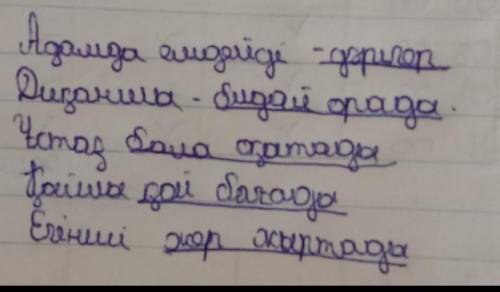 Адамда емдейді - дәрігер
Диханша - бидай орада.
Ұстаз бала оқатады
Қойшы қой бағады
Егінші жер жыртады